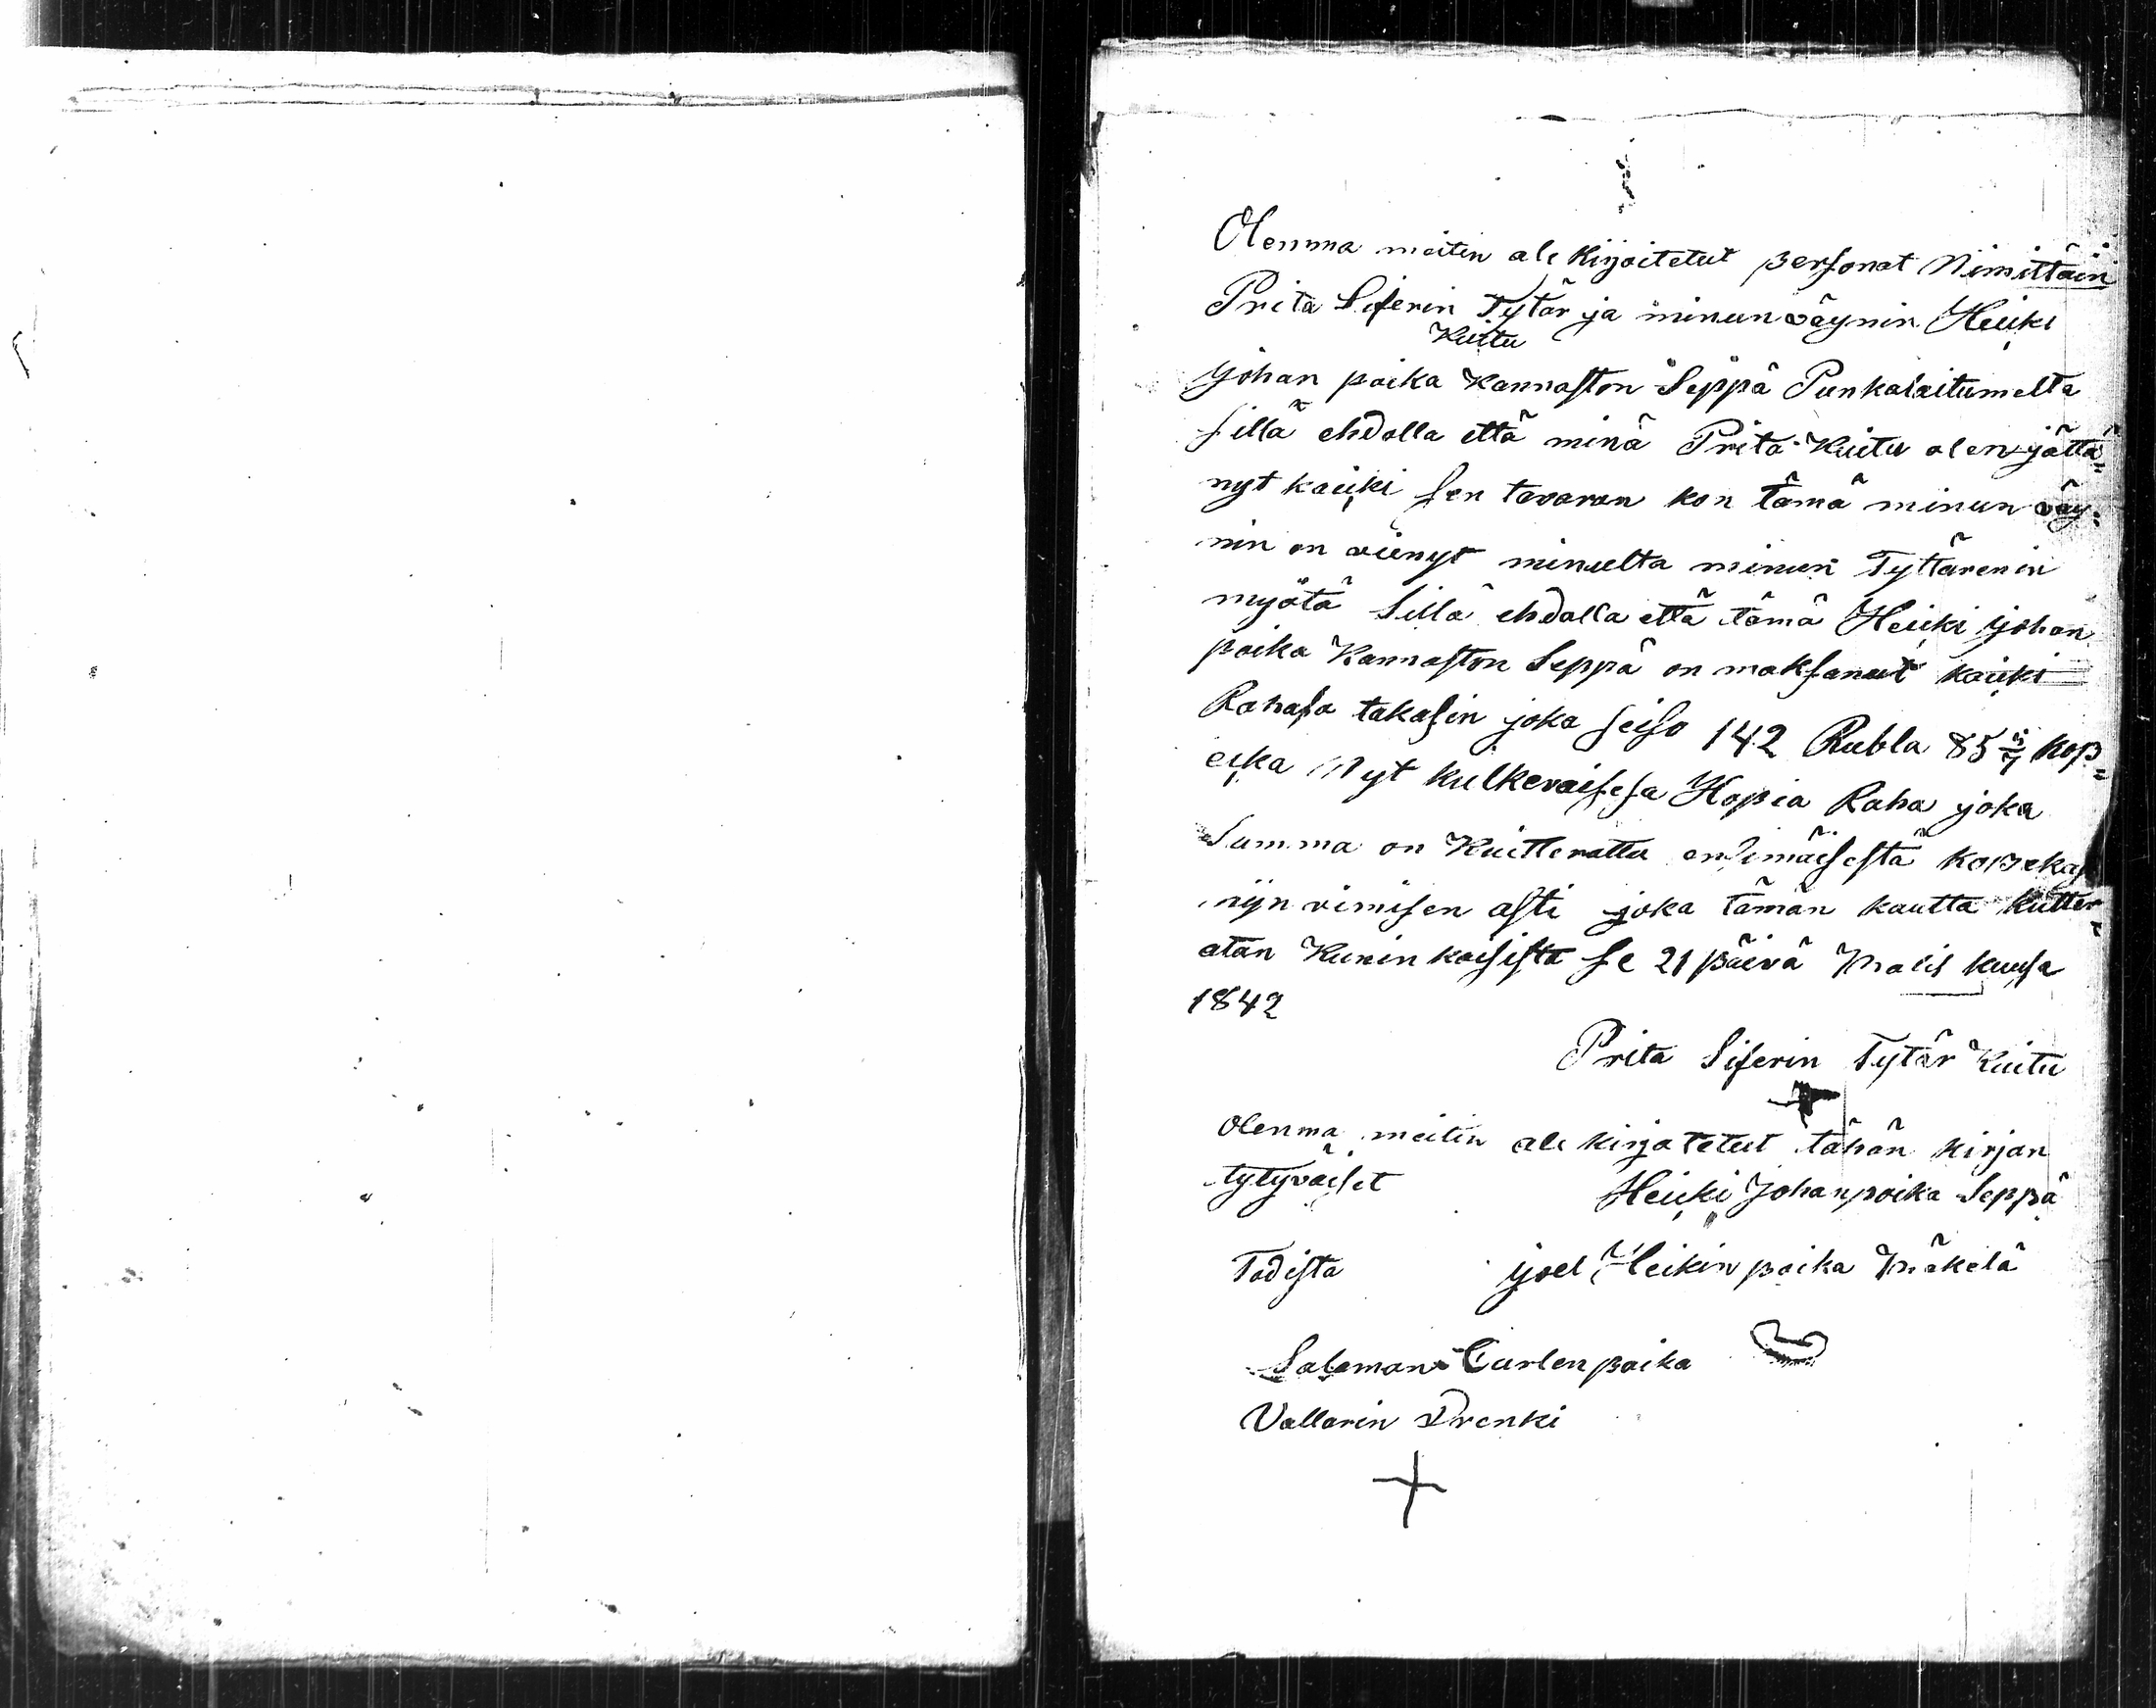 Olemma meitin ale kirjoitetut personat Nimittäin
Prita Siferin Tytär ja minun väynin Heiki
Kuitu
johan poika Kannaston Seppä Punkalaitumelta
sillä ehdolla että minä Prita Kuitu olen jättä=
nyt kaiki sen tavaran kon tämä minun väy=
nin on vienyt minulta minun Tyttärenin
myötä Sillä ehdolla että tämä Heiki johan
poika Kannaston Seppä on maksanut kaiki
Rahasa takasin joka seiso 142 Rubla 85 5/7 kop=
eika Nyt kulkevaisesa Hopia Raha joka
Summa on Kuitterattu ensimäisestä kopekast
niin vimisen asti joka tämän kautta kuitter=
atan Kuninkaisista se 21 päivä Malis kuusa
1842
Prita Siferin Tytär Kuitu
Olenma meitin ale kirjatetut tähän kirjan
tytyväiset Heiki Johanpoika Seppä
Todista joel Heikin poika Mäkelä
Saloman Carlen poika
Vallarin Drenki